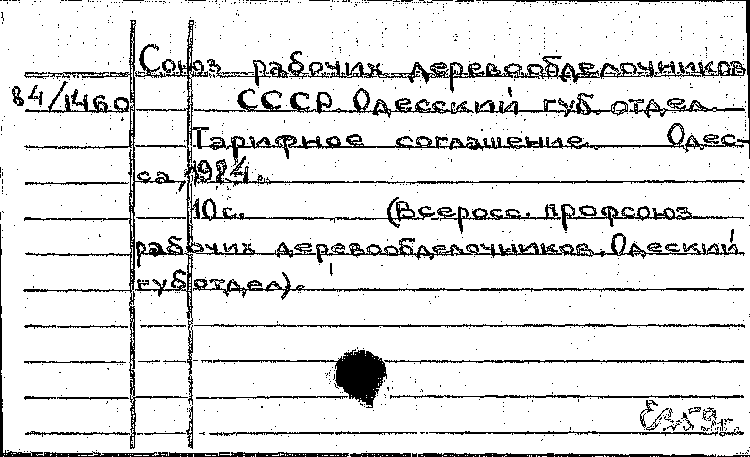 Союз рабочих деревообделочников
84/1460 СССР. Одесский губ. отдел.
Тарифное соглашение. Одес-
са, 1924.
10с. (Всеросс. профсоюз
рабочих деревообделочников. Одеский
губотдел).